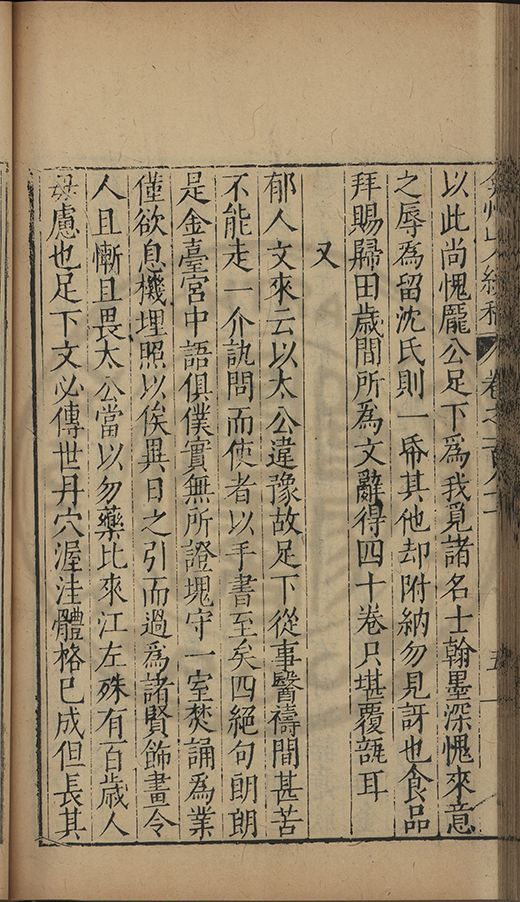 弇州山人續稿 卷之一百八十二 五
以此尚愧龐公足下爲我覓諸名士翰墨深愧來意
之辱爲留沈氏則一帋其他却附納勿見訝也食品
拜賜歸田歲間所爲文辭得四十卷只堪覆瓿耳
又
郁人文來云以太公違豫故足下從事醫禱間甚苦
不能走一介訊問而使者以手書至矣四絕句朗朗
是金臺宮中語俱僕實無所證塊守一室焚誦爲業
僅欲息機埋照以俟異日之引而過爲諸賢飾畫令
人且慚且畏太公當以勿藥比來江左殊有百歲人
毋慮也足下文必傳世丹穴渥洼體格已成但長其